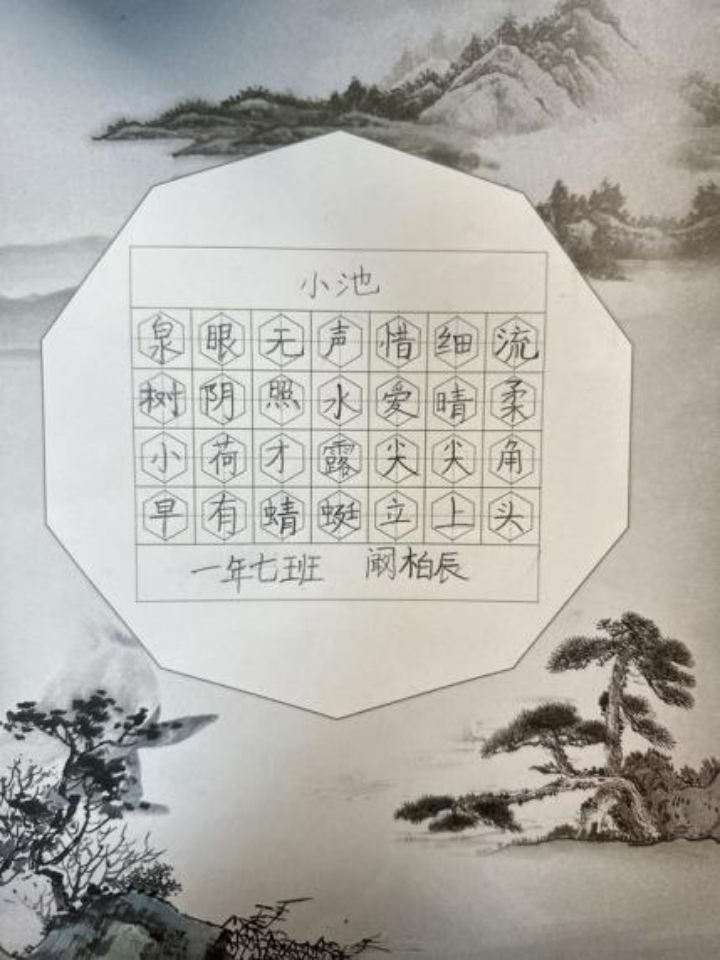 小池
泉眼无声惜细流
树阴照水爱晴柔
小荷才露尖尖角
早有蜻蜓立上头
一年七班 阚柏辰